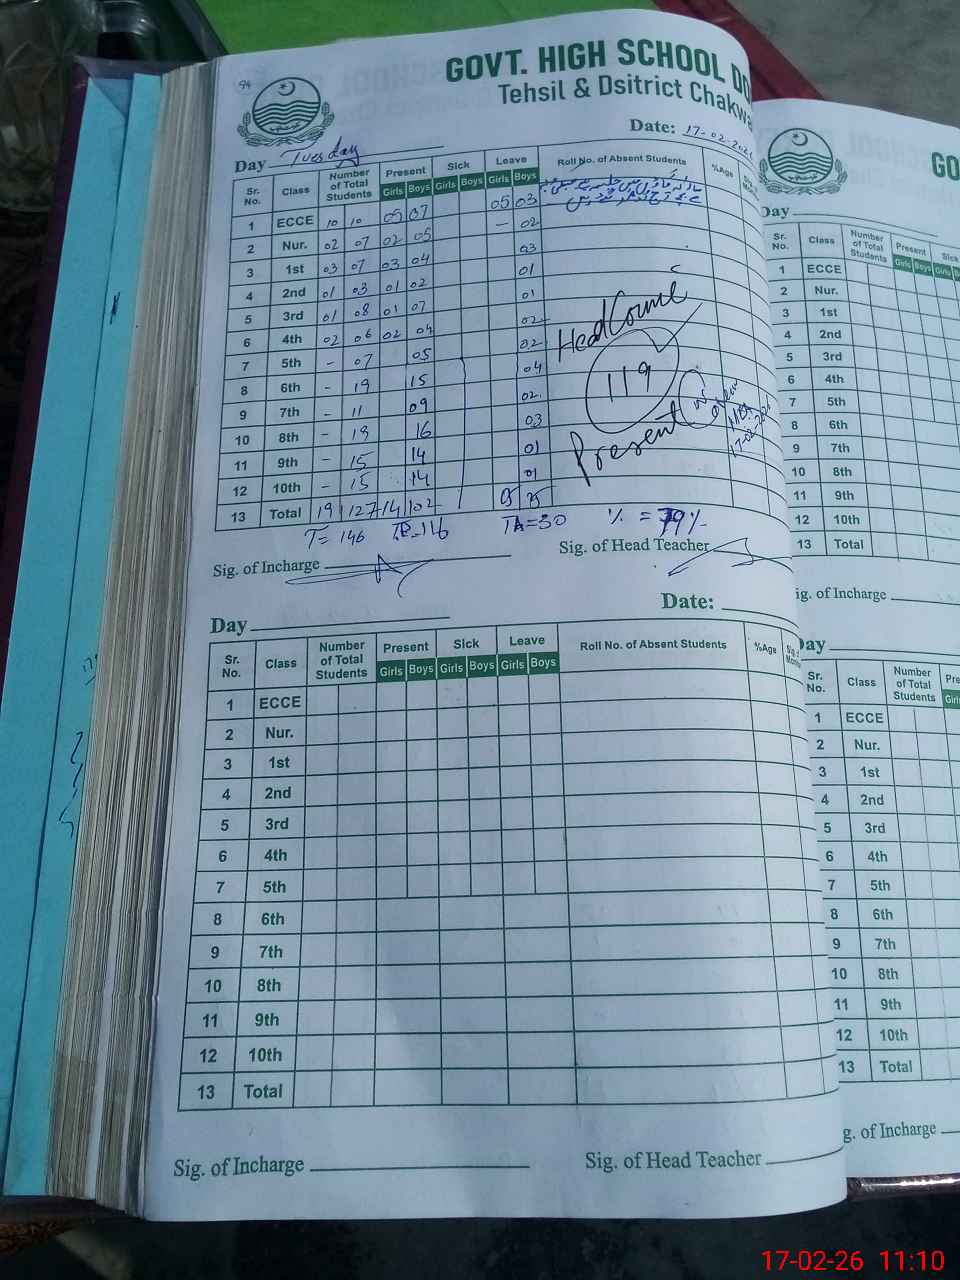 94
GOVT. HIGH SCHOOL DO
Tehsil & Dsitrict Chakwa
Day Tuesday Date: 17-02-202
Sr. No. Class Number of Total Students Present Sick Leave Roll No. of Absent Students %Age
Girls Boys Girls Boys Girls Boys
1 ECCE 10 10 05 07 05 03
2 Nur. 02 07 02 05 - 02
3 1st 03 07 03 04 03
4 2nd 01 03 01 02 01
5 3rd 01 08 01 07 01
6 4th 02 06 02 04 02
7 5th - 07 05 02
8 6th - 19 15 04
9 7th - 11 09 02
10 8th - 19 16 03
11 9th - 15 14 01
12 10th - 15 14 01
13 Total 19 127 14 102 05 25
Head Count
119
Present
17-02-2026
T= 146 T.P=116 TA=30 % = 79%
Sig. of Incharge Sig. of Head Teacher
Day Date:
Sr. No. Class Number of Total Students Present Sick Leave Roll No. of Absent Students %Age
Girls Boys Girls Boys Girls Boys
1 ECCE
2 Nur.
3 1st
4 2nd
5 3rd
6 4th
7 5th
8 6th
9 7th
10 8th
11 9th
12 10th
13 Total
Sig. of Incharge Sig. of Head Teacher
GO
Day
Sr. No. Class Number of Total Students Present Sick
Girls Boys Girls
1 ECCE
2 Nur.
3 1st
4 2nd
5 3rd
6 4th
7 5th
8 6th
9 7th
10 8th
11 9th
12 10th
13 Total
ig. of Incharge
Day
Sr. No. Class Number of Total Students Pre
Girls
1 ECCE
2 Nur.
3 1st
4 2nd
5 3rd
6 4th
7 5th
8 6th
9 7th
10 8th
11 9th
12 10th
13 Total
g. of Incharge
17-02-26 11:10